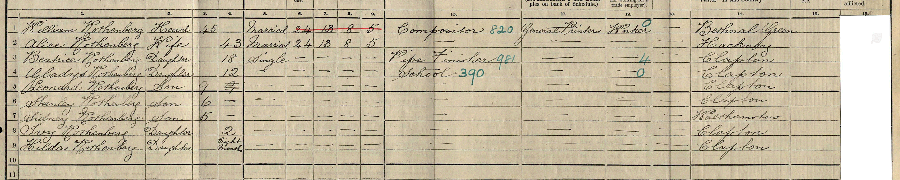 William Rothenberg Head 45 Married 24 13 8 5 Compositor 820 General Printer Worker Bethnal Green
2 Alice Rothenberg Wife 43 Married 24 13 8 5 Hackney
3 Beatrice Rothenberg Daughter 18 Single Pipe Finisher 981 4 Clapton
4 Rothenberg Daughter 12 School 390 0 Clapton
5 Leonard Rothenberg Son 9 Clapton
6 Stanley Rothenberg Son 6 Clapton
7 Sidney Rothenberg Son 5 Walthamstow
8 Ivy Rothenberg Daughter 2 Clapton
9 Hilda Rothenberg Daughter Eight Months Clapton
10
11